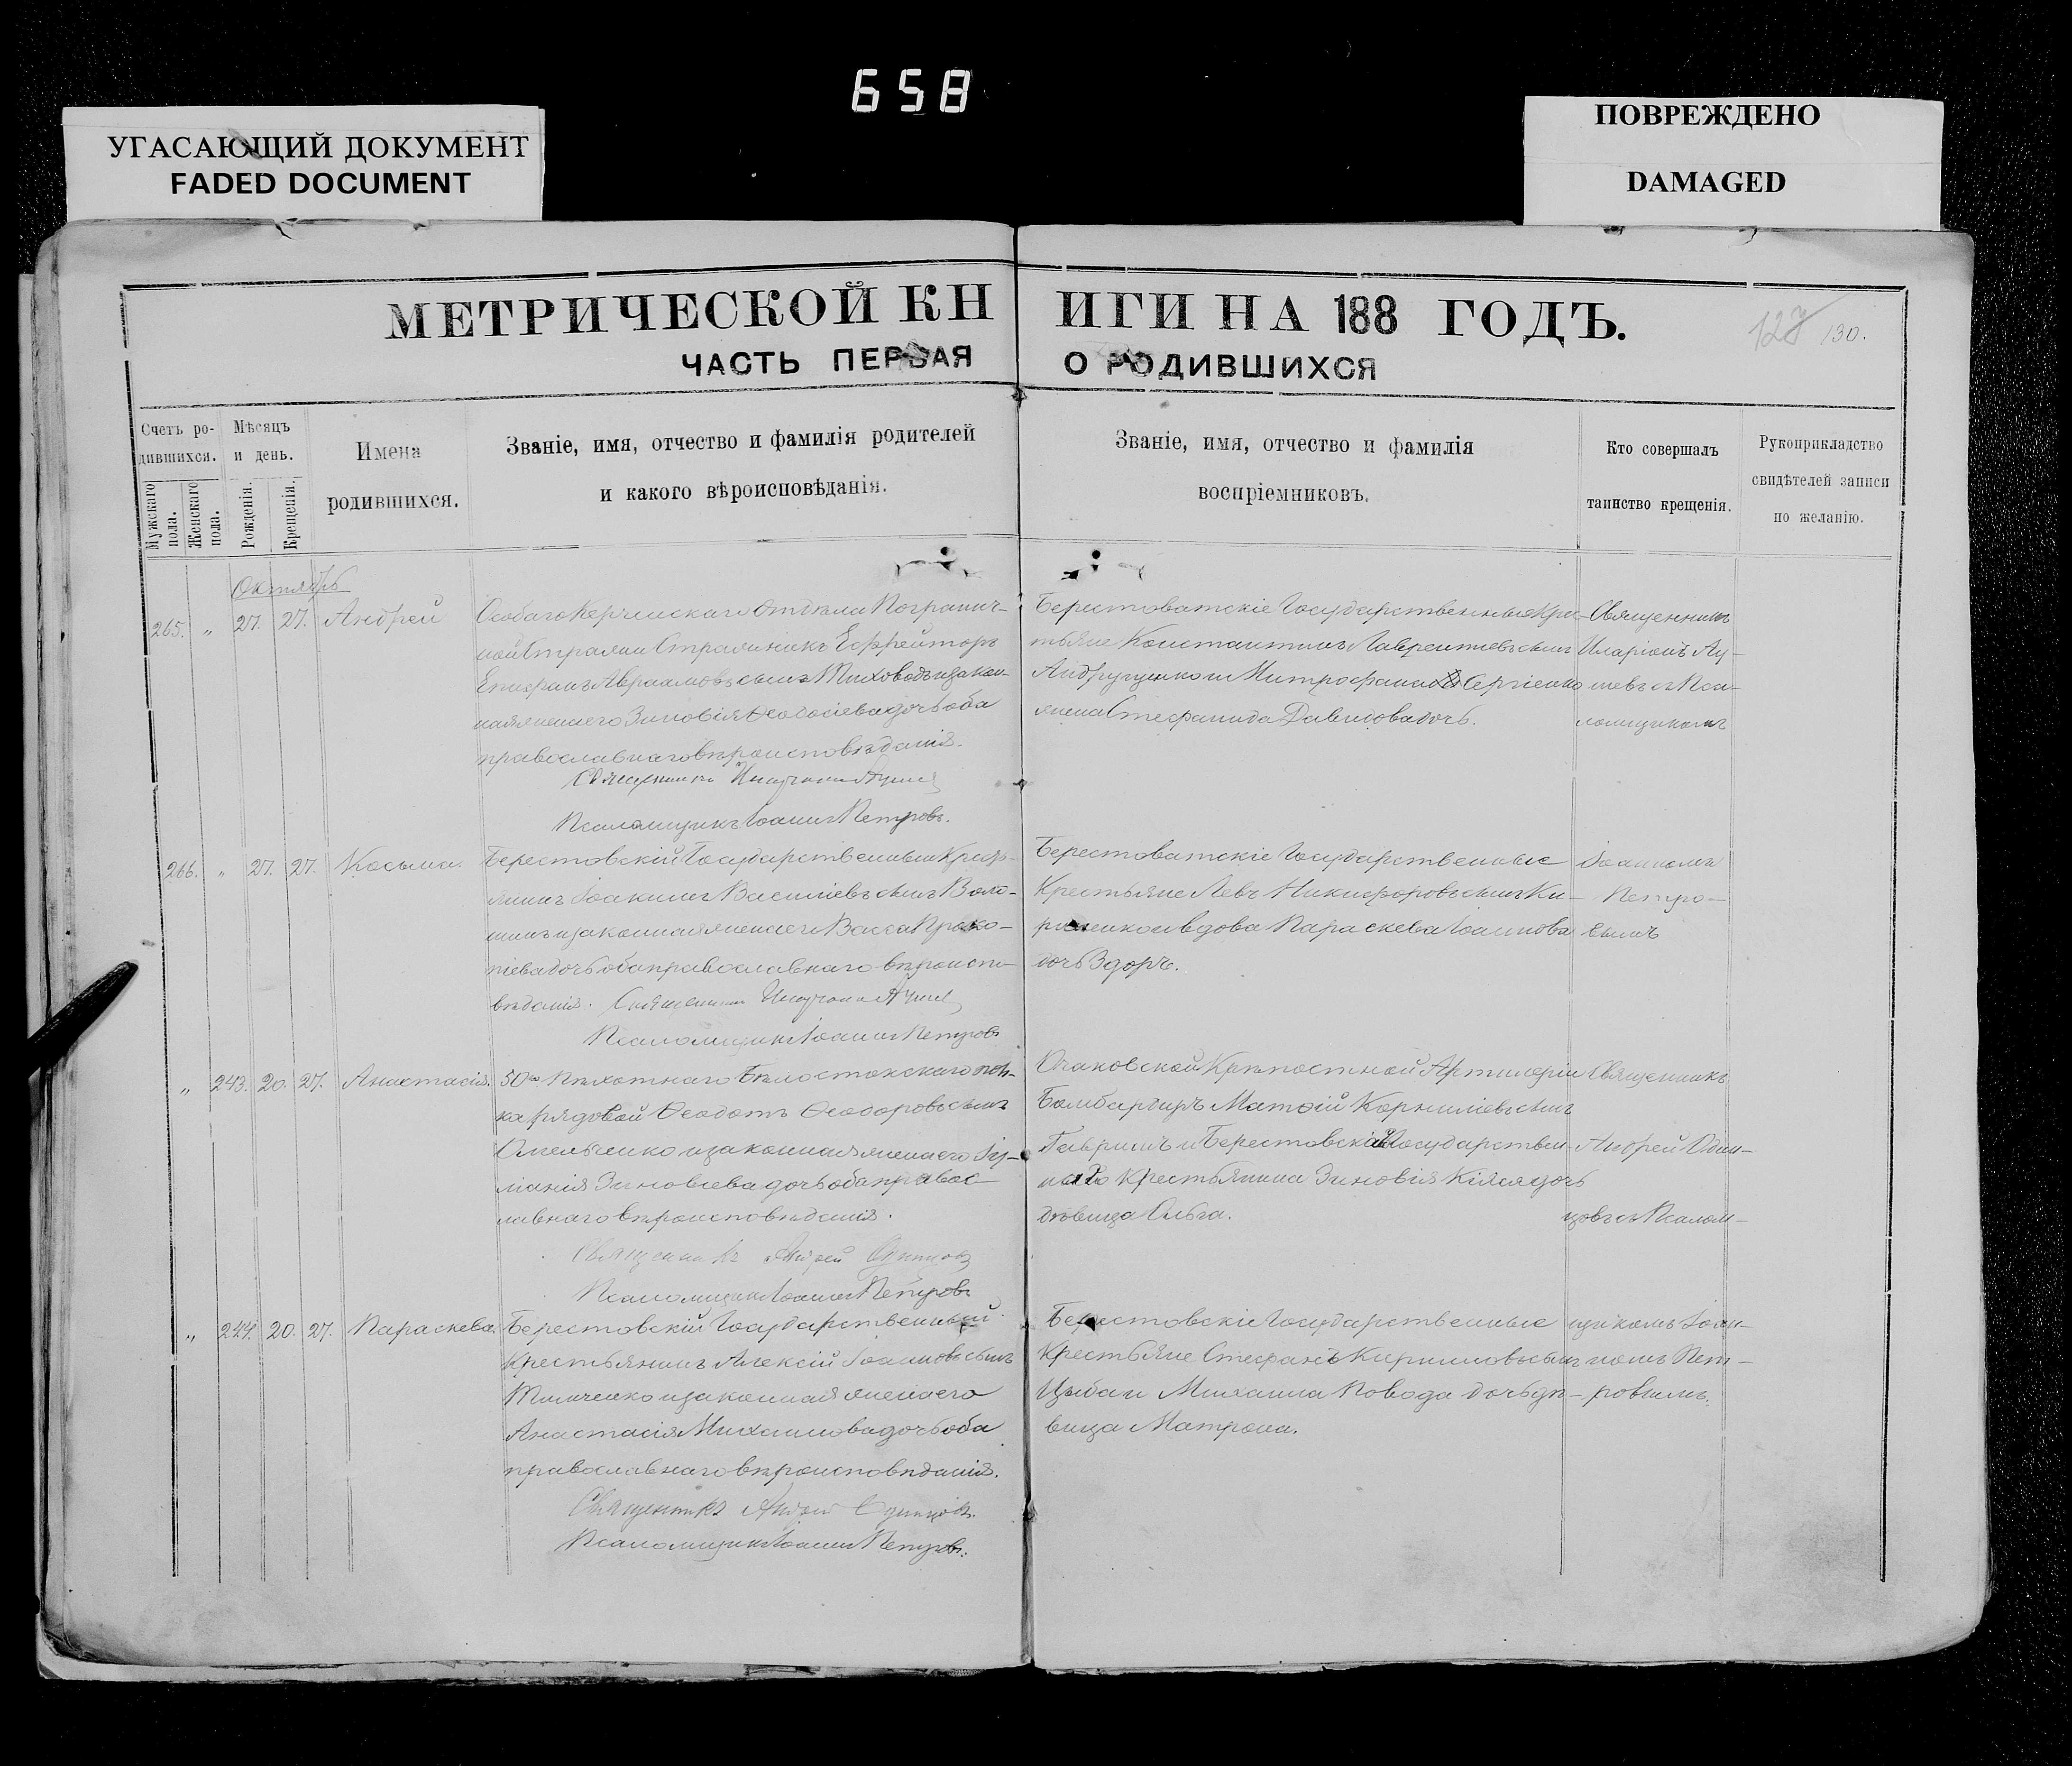 658
УГАСАЮЩИЙ ДОКУМЕНТ
FADED DOCUMENT
ПОВРЕЖДЕНО
DAMAGED
МЕТРИЧЕСКОЙ КНИГИ НА 188 ГОДЪ.
127 130.
ЧАСТЬ ПЕРВАЯ О РОДИВШИХСЯ
Счетъ родившихся.
Мужскаго пола.
Женскаго пола.
Мѣсяцъ и день.
Рожденія.
Крещенія.
Имена
родившихся.
Званіе, имя, отчество и фамилія родителей
и какого вѣроисповѣданія.
Званіе, имя, отчество и фамилія
воспріемниковъ.
Кто совершалъ
таинство крещенія.
Рукоприкладство
свидѣтелей записи
по желанію.
Октябрь
265. „ 27. 27. Андрей
Особаго Керченскаго Отдѣла Погранич-
ной Стражи Стражникъ Ефрейторъ
Епифанъ Авраамовъ сынъ и закон-
ная жена его Зиновія Ѳеодосіева дочь оба
православнаго вѣроисповѣданія.
Священникъ
Псаломщикъ Іоаннъ Петровъ.
Берестоватскіе Государственные Кре-
стьяне Константинъ Лаврентіевъ сынъ
Андрущенко и Митрофана Сергіенко
жена Стефанида Давидова дочь.
Священникъ
Иларіонъ
съ Пса-
ломщикомъ
266. „ 27. 27. Косьма.
Берестовскій Государственный Кресть-
янинъ Іоакимъ Василіевъ сынъ Воло-
шинъ и законная жена его Васса Проко-
піева дочь оба православнаго вѣроиспо-
вѣданія. Священникъ
Псаломщикъ Іоаннъ Петровъ
Берестоватскіе Государственные
Крестьяне Левъ Никифоровъ сынъ Ки-
риленко и вдова Параскева Іоаннова
дочь Здоръ.
Іоанномъ
Петро-
вымъ
„ 243. 20. 27. Анастасія.
50го Пѣхотнаго Бѣлостокскаго пол-
ка рядовой Ѳеодотъ Ѳеодоровъ сынъ
Омельченко и законная жена его Іу-
ліанія Зиновіева дочь оба правос-
лавнаго вѣроисповѣданія.
Священникъ Андрей Одинцовъ
Псаломщикъ Іоаннъ Петровъ
Очаковской Крѣпостной Артилеріи
Бомбардиръ Матѳій Корниліевъ сынъ
Гавришъ и Берестовскій Государствен-
наго Крестьянина Зиновія дочь
дѣвица Ольга.
Священникъ
Андрей Один-
цовъ съ Псалом-
„ 244. 20. 27. Параскева.
Берестовскій Государственный
Крестьянинъ Алексій Іоанновъ сынъ
Тимченко и законная жена его
Анастасія Михаилова дочь оба
православнаго вѣроисповѣданія.
Священникъ Андрей Одинцовъ.
Псаломщикъ Іоаннъ Петровъ.
Берестовскіе Государственные
Крестьяне Стефанъ Кирилловъ сынъ
Цыба и Михаила Повода дочь дѣ-
вица Матрона.
щикомъ Іоан-
номъ Пет-
ровымъ.